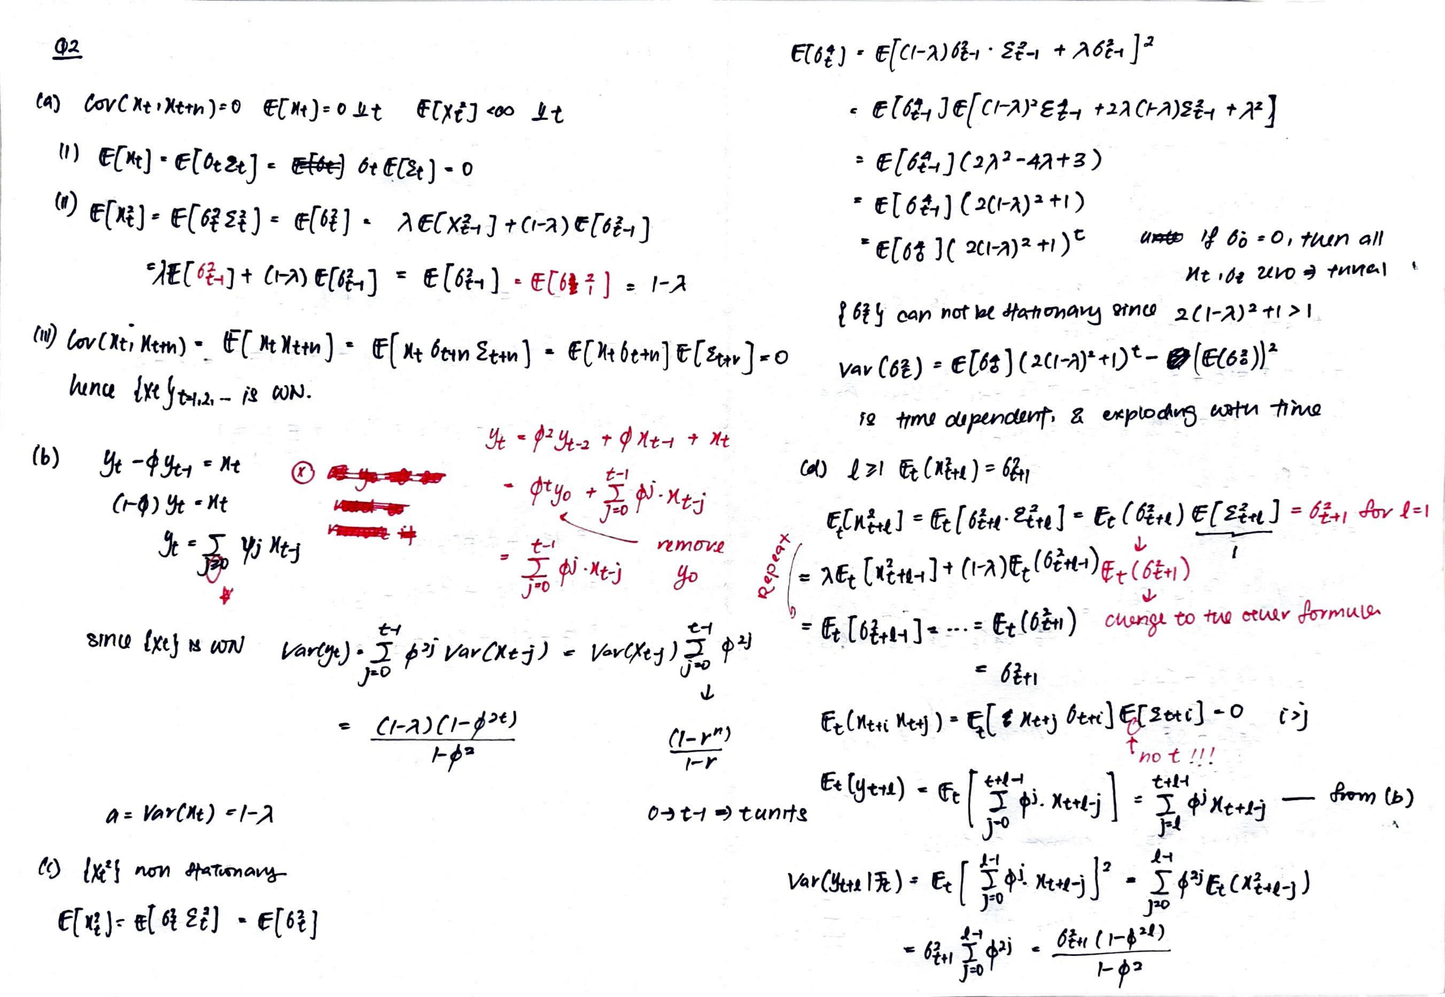 Q2
(a) Cov(xt, xt+n)=0 E[xt]=0 ∀t E[xt²]<∞ ∀t
(i) E[xt] = E[σtεt] = σt E[εt] = 0
(ii) E[xt²] = E[σt² εt²] = E[σt²] = λE[xt-1²] + (1-λ)E[σt-1²]
= λE[σt-1²] + (1-λ)E[σt-1²] = E[σt-1²] = E[σ1²] = 1-λ
(iii) Cov(xt, xt+n) = E[xt xt+n] = E[xt σt+n εt+n] = E[xt σt+n] E[εt+n] = 0
hence {xt}t=1,2,... is WN.
(b) yt - φyt-1 = xt
(1-φ)yt = xt
yt = Σj≥0 ψj xt-j
yt = φ² yt-2 + φ xt-1 + xt
= φ^t y0 + Σ_{j=0}^{t-1} φ^j · xt-j
= Σ_{j=0}^{t-1} φ^j · xt-j
remove
y0
since {xt} is WN Var(yt) = Σ_{j=0}^{t-1} φ^{2j} Var(xt-j) = Var(xt-j) Σ_{j=0}^{t-1} φ^{2j}
↓
= (1-λ)(1-φ^{2t}) / 1-φ²
(1-r^n) / 1-r
a = Var(xt) = 1-λ
0→t-1 ⇒ t units
(c) {xt²} non stationary
E[xt²] = E[σt² εt²] = E[σt²]
E[σt⁴] = E[(1-λ)σt-1² · εt-1² + λσt-1²]²
= E[σt-1⁴] E[(1-λ)² εt-1⁴ + 2λ(1-λ)εt-1² + λ²]
= E[σt-1⁴](2λ²-4λ+3)
= E[σt-1⁴](2(1-λ)²+1)
= E[σ0⁴](2(1-λ)²+1)^t
if σ0² = 0, then all
xt, σt zero ⇒ trivial
{σt²} can not be stationary since 2(1-λ)²+1>1
Var(σt²) = E[σ0⁴](2(1-λ)²+1)^t - (E(σ0²))²
is time dependent, & exploding with time
(d) l≥1 Et(xt+l²) = σt+1²
Et[xt+l²] = Et[σt+l² · εt+l²] = Et(σt+l²) E[εt+l²] = σt+1² for l=1
1
Repeat
= λEt[xt+l-1²] + (1-λ)Et(σt+l-1²) Et(σt+1²)
↓
= Et[σt+l-1²] = ... = Et(σt+1²) change to the other formula
= σt+1²
Et(xt+i xt+j) = Et[xt+j σt+i] E[εt+i] = 0 i>j
↑ no t !!!
Et(yt+l) = Et[Σ_{j=0}^{t+l-1} φ^j · xt+l-j] = Σ_{j=l}^{t+l-1} φ^j xt+l-j — from (b)
Var(yt+l|Ft) = Et[Σ_{j=0}^{l-1} φ^j · xt+l-j]² = Σ_{j=0}^{l-1} φ^{2j} Et(xt+l-j²)
= σt+1² Σ_{j=0}^{l-1} φ^{2j} = σt+1²(1-φ^{2l}) / 1-φ²